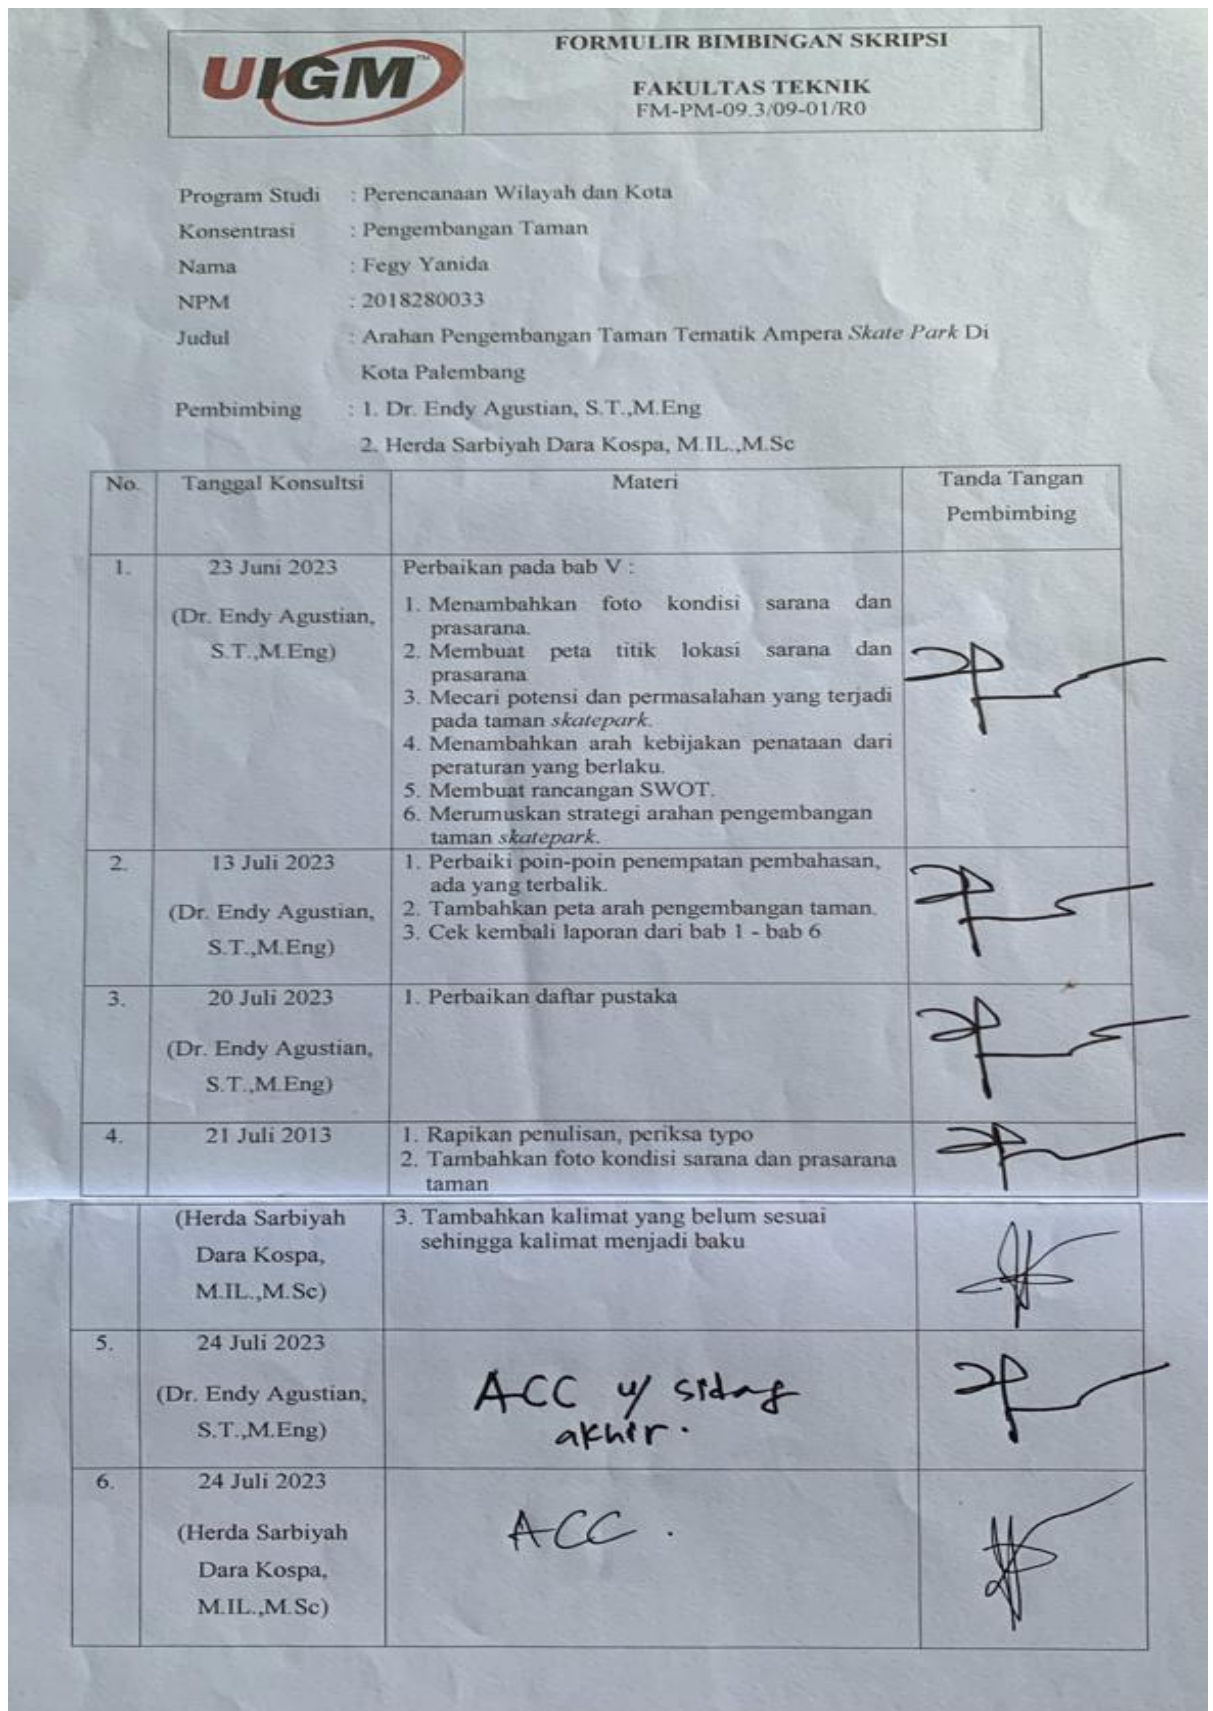 UIGM
FORMULIR BIMBINGAN SKRIPSI
FAKULTAS TEKNIK
FM-PM-09.3/09-01/R0
Program Studi : Perencanaan Wilayah dan Kota
Konsentrasi : Pengembangan Taman
Nama : Fegy Yanida
NPM : 2018280033
Judul : Arahan Pengembangan Taman Tematik Ampera Skate Park Di
Kota Palembang
Pembimbing : 1. Dr. Endy Agustian, S.T.,M.Eng
2. Herda Sarbiyah Dara Kospa, M.IL.,M.Sc
No. Tanggal Konsultsi Materi Tanda Tangan
Pembimbing
1. 23 Juni 2023
(Dr. Endy Agustian,
S.T.,M.Eng)
Perbaikan pada bab V :
1. Menambahkan foto kondisi sarana dan
prasarana.
2. Membuat peta titik lokasi sarana dan
prasarana
3. Mecari potensi dan permasalahan yang terjadi
pada taman skatepark.
4. Menambahkan arah kebijakan penataan dari
peraturan yang berlaku.
5. Membuat rancangan SWOT.
6. Merumuskan strategi arahan pengembangan
taman skatepark.
2. 13 Juli 2023
(Dr. Endy Agustian,
S.T.,M.Eng)
1. Perbaiki poin-poin penempatan pembahasan,
ada yang terbalik.
2. Tambahkan peta arah pengembangan taman.
3. Cek kembali laporan dari bab 1 - bab 6
3. 20 Juli 2023
(Dr. Endy Agustian,
S.T.,M.Eng)
1. Perbaikan daftar pustaka
4. 21 Juli 2013
1. Rapikan penulisan, periksa typo
2. Tambahkan foto kondisi sarana dan prasarana
taman
(Herda Sarbiyah
Dara Kospa,
M.IL.,M.Sc)
3. Tambahkan kalimat yang belum sesuai
sehingga kalimat menjadi baku
5. 24 Juli 2023
(Dr. Endy Agustian,
S.T.,M.Eng)
ACC u/ sidang
akhir.
6. 24 Juli 2023
(Herda Sarbiyah
Dara Kospa,
M.IL.,M.Sc)
ACC.